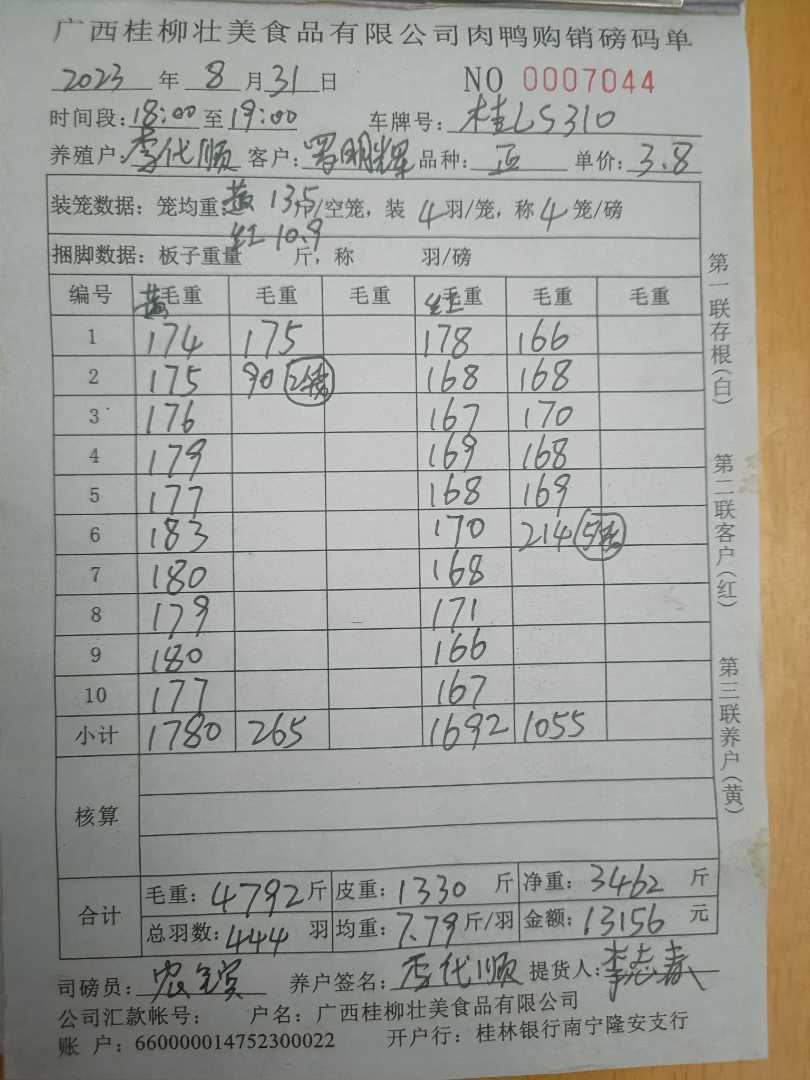 广西桂柳壮美食品有限公司肉鸭购销磅码单
2023 年 8 月 31 日 NO 0007044
时间段: 18:00 至 19:00 车牌号: 桂LS310
养殖户: 李代顺 客户: 明辉 品种: 正 单价: 3.8
装笼数据: 笼均重: 黄 13.5 斤/空笼, 装 4 羽/笼, 称 4 笼/磅
红 10.9
捆脚数据: 板子重量 斤, 称 羽/磅
编号 黄毛重 毛重 毛重 红毛重 毛重 毛重
1 174 175 178 166
2 175 90 2笼 168 168
3 176 167 170
4 179 169 168
5 177 168 169
6 183 170 214 5笼
7 180 168
8 179 171
9 180 166
10 177 167
小计 1780 265 1692 1055
核算
合计 毛重: 4792 斤 皮重: 1330 斤 净重: 3462 斤
总羽数: 444 羽 均重: 7.79 斤/羽 金额: 13156 元
司磅员: 养户签名: 李代顺 提货人: 李志春
公司汇款帐号: 户名: 广西桂柳壮美食品有限公司
账 户: 660000014752300022 开户行: 桂林银行南宁隆安支行
第一联存根(白)
第二联客户(红)
第三联养户(黄)